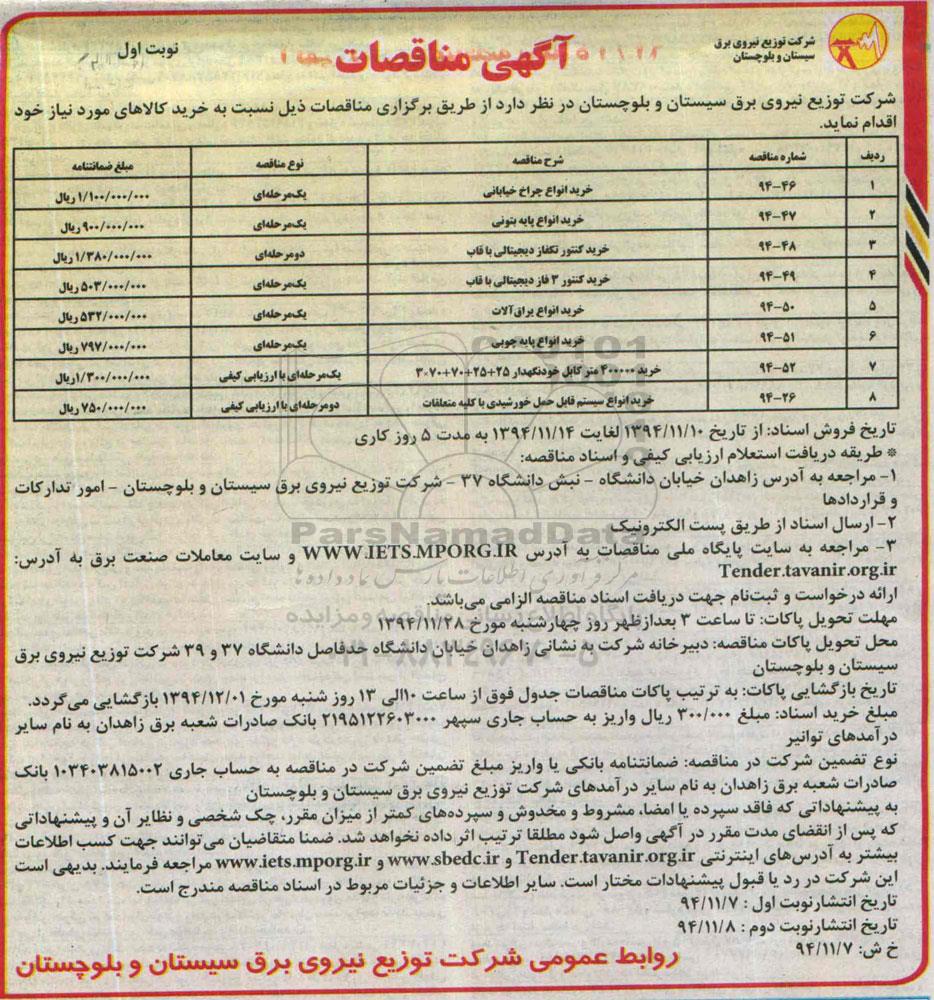 شرکت توزیع نیروی برق
سیستان و بلوچستان
آگهی مناقصات
نوبت اول
شرکت توزیع نیروی برق سیستان و بلوچستان در نظر دارد از طریق برگزاری مناقصات ذیل نسبت به خرید کالاهای مورد نیاز خود
اقدام نماید.
ردیف شماره مناقصه شرح مناقصه نوع مناقصه مبلغ ضمانتنامه
۱ ۹۴-۴۶ خرید انواع چراغ خیابانی یک‌مرحله‌ای ۱/۱۰۰/۰۰۰/۰۰۰ ریال
۲ ۹۴-۴۷ خرید انواع پایه بتونی یک‌مرحله‌ای ۹۰۰/۰۰۰/۰۰۰ ریال
۳ ۹۴-۴۸ خرید کنتور تکفاز دیجیتالی با قاب دومرحله‌ای ۱/۳۸۰/۰۰۰/۰۰۰ ریال
۴ ۹۴-۴۹ خرید کنتور ۳ فاز دیجیتالی با قاب یک‌مرحله‌ای ۵۰۳/۰۰۰/۰۰۰ ریال
۵ ۹۴-۵۰ خرید انواع یراق‌آلات یک‌مرحله‌ای ۵۳۲/۰۰۰/۰۰۰ ریال
۶ ۹۴-۵۱ خرید انواع پایه چوبی یک‌مرحله‌ای ۷۹۷/۰۰۰/۰۰۰ ریال
۷ ۹۴-۵۲ خرید ۴۰۰۰۰۰ متر کابل خودنگهدار ۲۵+۲۵+۷۰+۷۰×۳ یک‌مرحله‌ای با ارزیابی کیفی ۱/۳۰۰/۰۰۰/۰۰۰ ریال
۸ ۹۴-۲۶ خرید انواع سیستم قابل حمل خورشیدی با کلیه متعلقات دومرحله‌ای با ارزیابی کیفی ۷۵۰/۰۰۰/۰۰۰ ریال
تاریخ فروش اسناد: از تاریخ ۱۳۹۴/۱۱/۱۰ لغایت ۱۳۹۴/۱۱/۱۴ به مدت ۵ روز کاری
* طریقه دریافت استعلام ارزیابی کیفی و اسناد مناقصه:
۱- مراجعه به آدرس زاهدان خیابان دانشگاه - نبش دانشگاه ۳۷ - شرکت توزیع نیروی برق سیستان و بلوچستان - امور تدارکات
و قراردادها
۲- ارسال اسناد از طریق پست الکترونیک
ParsNamadData
۳- مراجعه به سایت پایگاه ملی مناقصات به آدرس WWW.IETS.MPORG.IR و سایت معاملات صنعت برق به آدرس:
Tender.tavanir.org.ir
ارائه درخواست و ثبت‌نام جهت دریافت اسناد مناقصه الزامی می‌باشد.
مهلت تحویل پاکات: تا ساعت ۳ بعدازظهر روز چهارشنبه مورخ ۱۳۹۴/۱۱/۲۸
محل تحویل پاکات مناقصه: دبیرخانه شرکت به نشانی زاهدان خیابان دانشگاه حدفاصل دانشگاه ۳۷ و ۳۹ شرکت توزیع نیروی برق
سیستان و بلوچستان
تاریخ بازگشایی پاکات: به ترتیب پاکات مناقصات جدول فوق از ساعت ۱۰ الی ۱۳ روز شنبه مورخ ۱۳۹۴/۱۲/۰۱ بازگشایی می‌گردد.
مبلغ خرید اسناد: مبلغ ۳۰۰/۰۰۰ ریال واریز به حساب جاری سپهر ۲۱۹۵۱۲۲۶۰۳۰۰۰ بانک صادرات شعبه برق زاهدان به نام سایر
درآمدهای توانیر
نوع تضمین شرکت در مناقصه: ضمانتنامه بانکی یا واریز مبلغ تضمین شرکت در مناقصه به حساب جاری ۱۰۳۴۰۳۸۱۵۰۰۲ بانک
صادرات شعبه برق زاهدان به نام سایر درآمدهای شرکت توزیع نیروی برق سیستان و بلوچستان
به پیشنهاداتی که فاقد سپرده یا امضا، مشروط و مخدوش و سپرده‌های کمتر از میزان مقرر، چک شخصی و نظایر آن و پیشنهاداتی
که پس از انقضای مدت مقرر در آگهی واصل شود مطلقا ترتیب اثر داده نخواهد شد. ضمنا متقاضیان می‌توانند جهت کسب اطلاعات
بیشتر به آدرس‌های اینترنتی Tender.tavanir.org.ir و www.sbedc.ir و www.iets.mporg.ir مراجعه فرمایند. بدیهی است
این شرکت در رد یا قبول پیشنهادات مختار است. سایر اطلاعات و جزئیات مربوط در اسناد مناقصه مندرج است.
تاریخ انتشار نوبت اول : ۹۴/۱۱/۷
تاریخ انتشار نوبت دوم : ۹۴/۱۱/۸
خ ش: ۹۴/۱۱/۷
روابط عمومی شرکت توزیع نیروی برق سیستان و بلوچستان